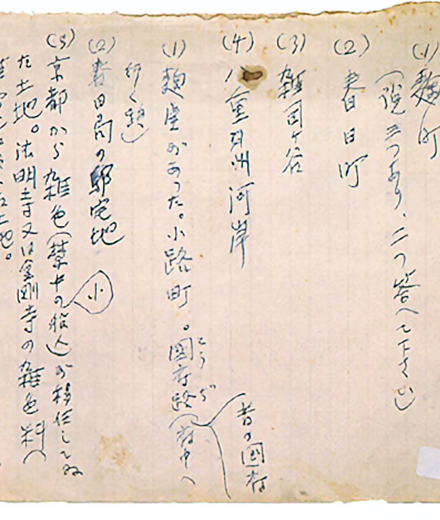 (1) 麹町
(説三つあり、二つ答へて下さい)
(2) 春日町
(3) 雑司ヶ谷
(4) 八重洲河岸
(1) 麹屋があった。小路町。国府路(府中へ
こうぢ
昔の国府
行く路)
(2) 春日局の邸宅地
(3) 京都から雑色(禁中の小役人)が移住してゐ
た土地。法明寺又は金剛寺の雑色料